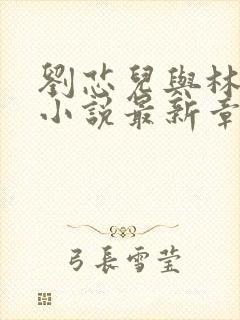 劉芯兒與林
小說最新章
弓長雪莹